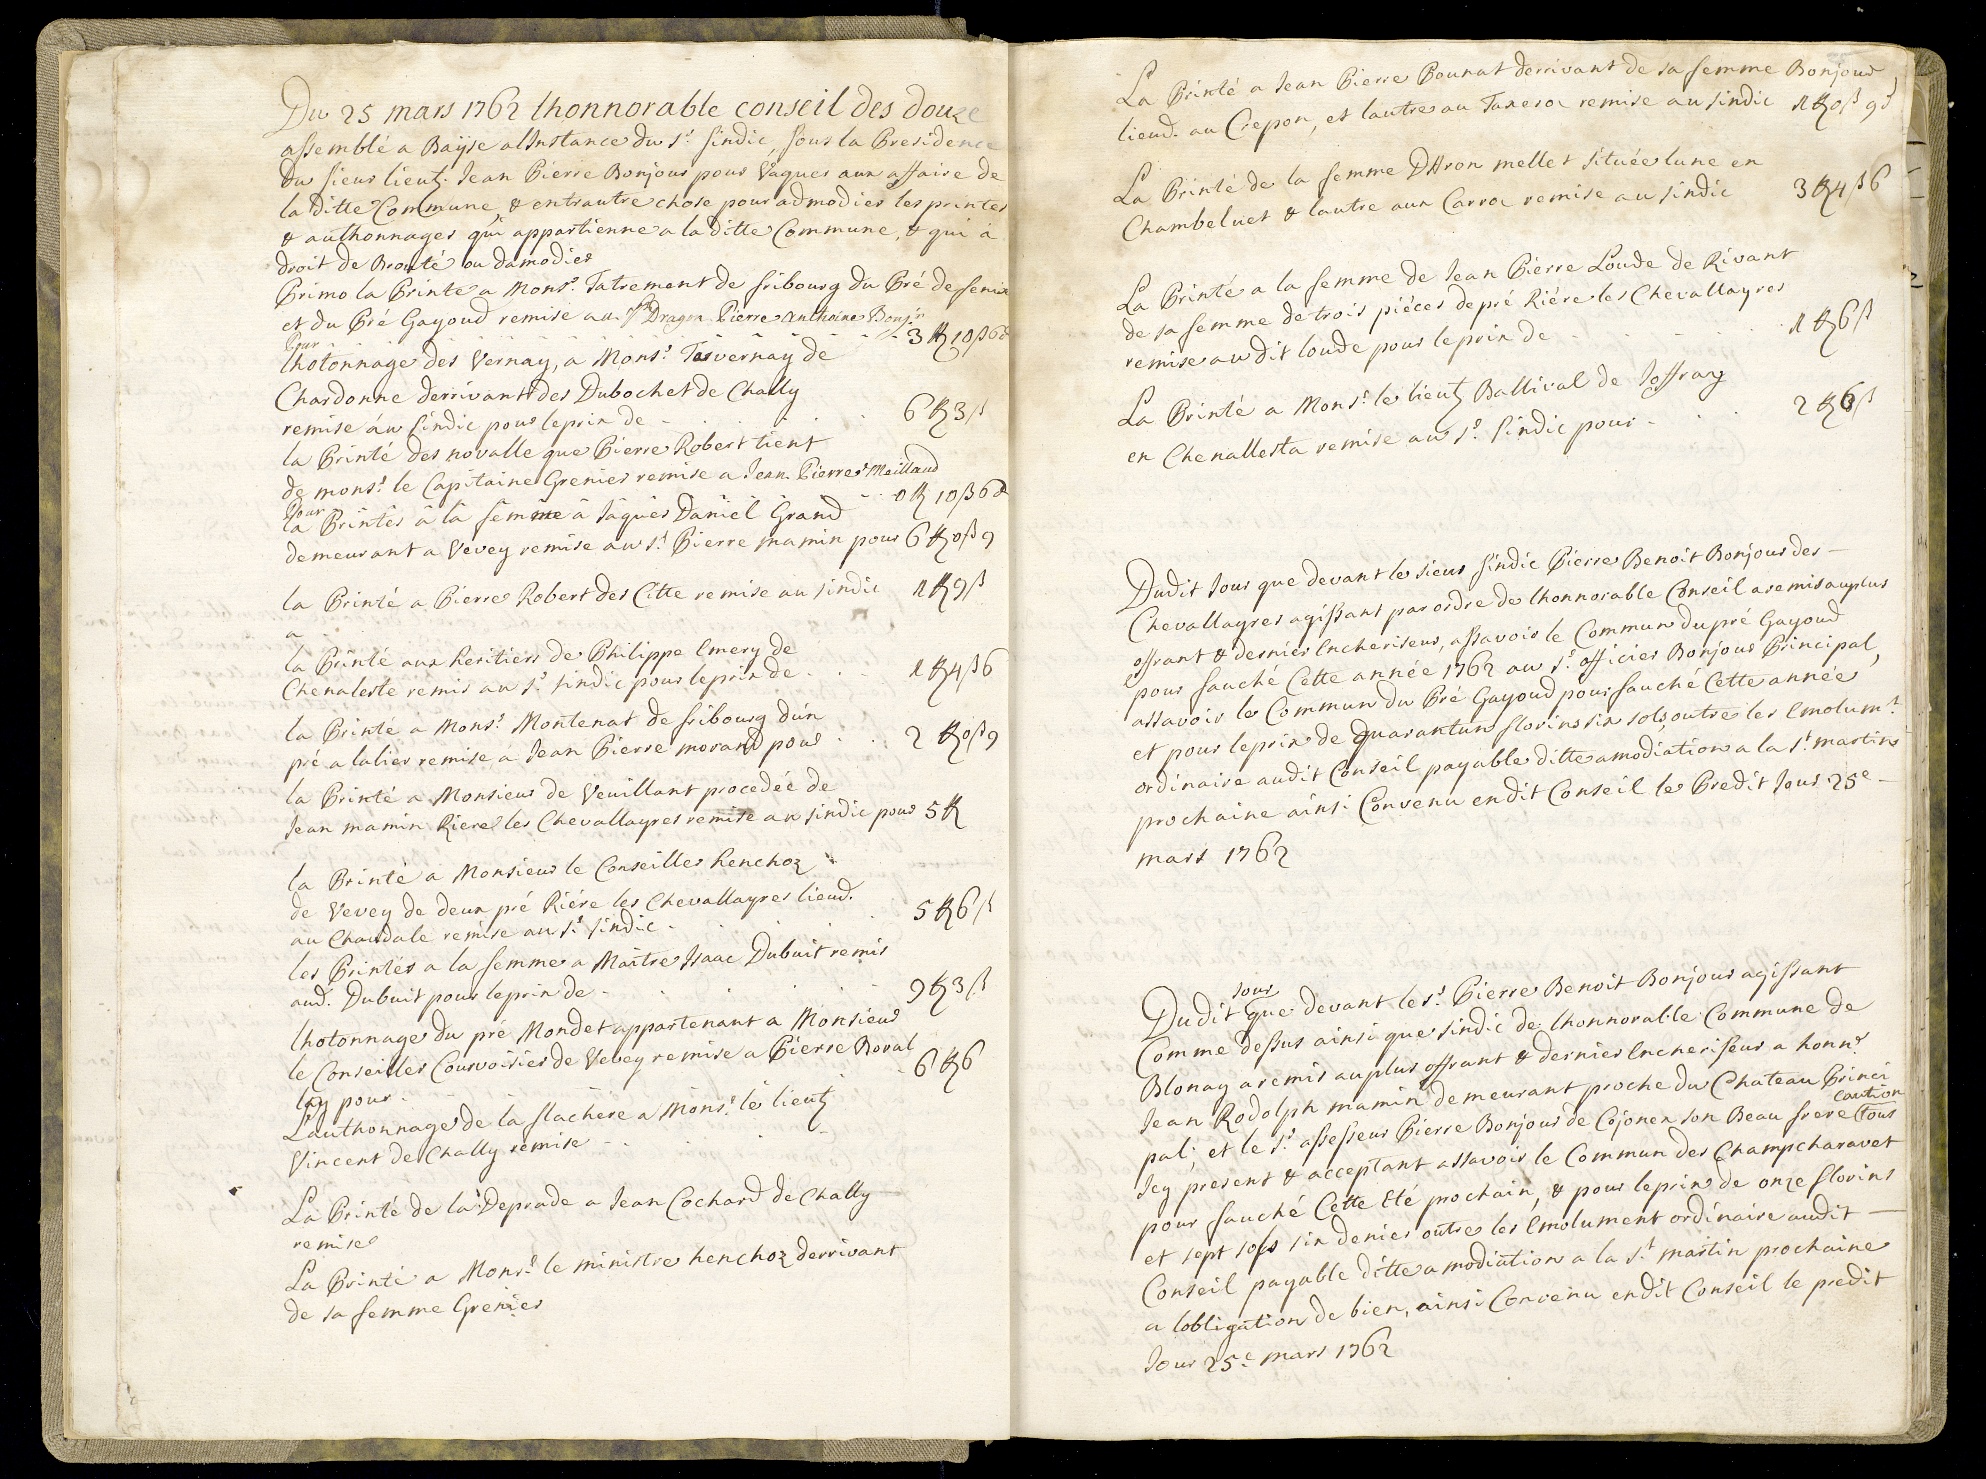 Du 25 mars 1762 lhonnorable conseil des douze
assemblé a Bayse alInstance du sr. sindic, sous la Presidence
du sieur lieut. Jean Pierre Bonjour pour vaquer aux affaire de
la ditte Commune & entrautre chose pour admodier les printes
& authonnages qui appartienne a la ditte Commune, & qui a
droit de Brouté ou damodier
Primo la Printe a Monsr. Tatrement de fribourg du Pré de
et du Pré Gayoud remise au sr. Dragon Pierre Anthoine Bonjr.
pour 3 fl 10 ß 6 d
lhotonnage des Vernay, a Monsr. Tavernay de
Chardonne derrivant des Dubochet de Chally
remise au sindic pour le prix de 6 fl 3 ß
la Printé des novalle que Pierre Robert tient
de monsr. le Capitaine Grenier remise a Jean Pierre Maillard
pour 0 fl 10 ß 6 d
la Printés à la femme à Jâques Daniel Grand
demeurant a Vevey remise au sr. Pierre mamin pour 6 fl 0 ß 9
la Printé a Pierre Robert des Citte remise au sindic 1 fl 9 ß
a
la Printé aux heritiers de Philippe Emery de
Chenaleste remis au sr. sindic pour le prix de 1 fl 4 ß 6
la Printé a Monsr. Montenat de fribourg dun
pré a lalier remise a Jean Pierre morand pour 2 fl 0 ß 9
la Printé a Monsieur de Veuillant procedée de
Jean mamin Riere les Chevallayres remise au sindic pour 5 fl
la Printé a Monsieur le Conseiller henchoz
de Vevey de deux pré Riére les Chevallayres lieud.
au Chaudale remise au sr. sindic 5 fl 6 ß
les Printés a la femme a Maitre Isaac Dubuit remis
aud. Dubuit pour le prix de 9 fl 3 ß
lhotonnage du pré Mondet appartenant a Monsieur
le Conseiller Courvoisier de Vevey remise a Pierre Boral
lay pour 6 fl 6
Lauthonnage de la flachere a Monsr. le lieut
Vincent de Chally remise
La Printé de la Deprade a Jean Cochard de Chally
remise
La Printé a Monsr. le ministre henchoz derrivant
de sa femme Grenier
La Printé a Jean Pierre Bounat derrivant de sa femme Bonjour,
lieud. au Crepon, et lautre au Taxeroz remise au sindic 1 fl 0 ß 9 d
La Printé de la femme DAron mellet située lune en
Chambeluet & lautre aux Carroz remise au sindic 3 fl 4 ß 6
La Printé a la femme de Jean Pierre Loude de Rivant
de sa femme de trois piéces de pré Riére les Chevallayres
remise au dit loude pour le prix de 1 fl 6 ß
La Printé a Monsr. le lieut Ballival de Joffray
en Chenallesta remise au sr. sindic pour 2 fl 6 ß
Dudit Jour que devant le sieur sindic Pierre Benoit Bonjour des
Chevallayres agissant par ordre de lhonnorable Conseil a remis au plus
offrant & dernier Encheriseur, assavoir le Commun du pré Gayoud
pour fauché Cette année 1762 au sr. officier Bonjour Principal,
assavoir le Commun du Pré Gayoud pour fauché Cette année
et pour le prix de quarantun florins six sols, outre les Emolumt.
ordinaire audit Conseil payable ditte amodiation a la st. martin
prochaine ainsi Convenu endit Conseil le Predit Jour 25e
mars 1762
Dudit Jour que devant le sr. Pierre Benoit Bonjour agissant
Comme dessus ainsi que sindic de lhonnorable Commune de
Blonay a remis au plus offrant & dernier Encherisseur a honnr.
Jean Rodolph mamin demeurant proche du Chateau Princi
pal; et le sr. assesseur Pierre Bonjour de Cojonex son Beau frere caution tous
Icy present & acceptant assavoir le Commun des Champcharavet
pour fauché Cette Eté prochain, & pour le prix de onze florins
et sept sols six denier outre les Emolument ordinaire audit
Conseil payable ditte amodiation a la st. martin prochaine
a lobligation de bien, ainsi Convenu endit Conseil le predit
Jour 25e mars 1762